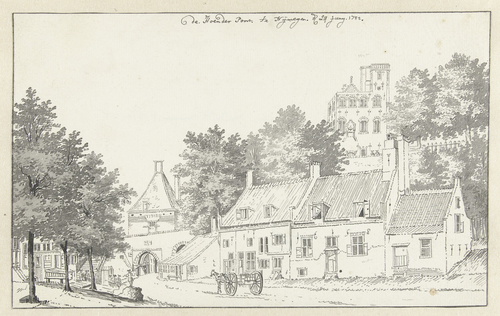 de Hoender Poort te Nijmegen. 28 juny. 1742.